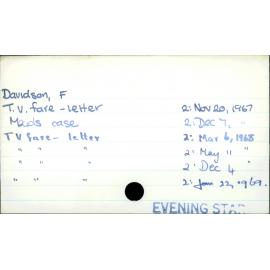 Davidson, F
T.V. fare - letter 2: Nov 20, 1967
Maids case 2: Dec 7, "
TV fare - letter 2: Mar 6, 1968
" " " 2: May 11 "
" " " 2: Dec 4 "
" " " 2: Jan 22, 1969.
EVENING STAR